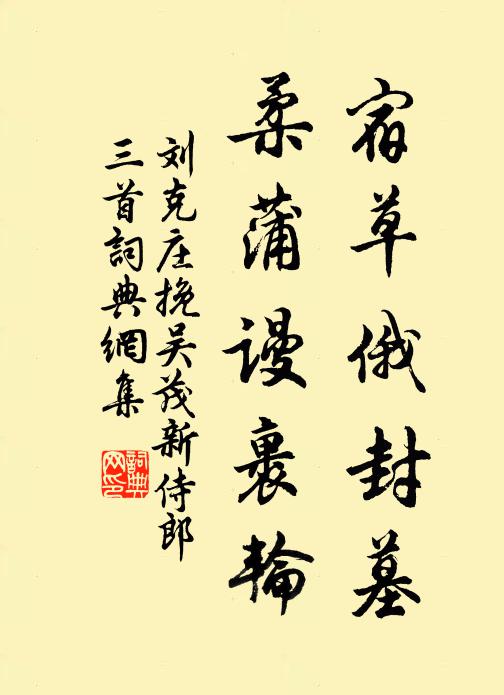 宿草俄封墓
柔蒲谩裹輪
刘克庄挽吴茂新侍郎
三首詞典網集
詞典网印